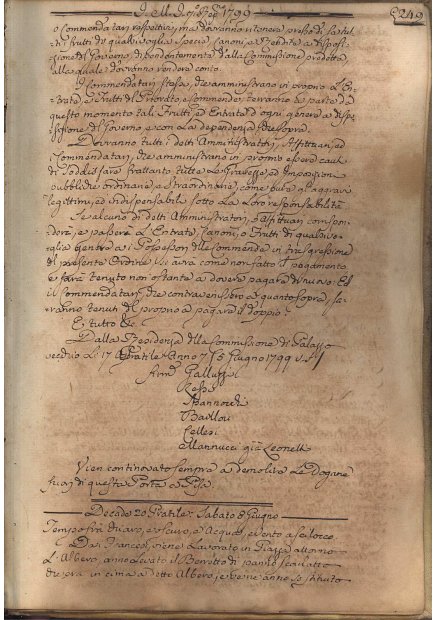 1799
249
o Commendatarj respettivi, ma dovranno ritenere presso di se tutti
di Frutti di qualsivoglia specie, Canoni, e Rendite a disposi-
zione del Governo, ed onninamente dalla Commissione predetta
alla quale dovranno renderne conto.
I Commendatarj stessi, che amministrano in proprio l'En-
trate, e Frutti del Priorato, e Commende, terranno a parte da
questo momento tali Frutti, ed Entrate d'ogni genere a dispo-
sizione del Governo, e con la dependenza che sopra.
Dovranno tutti i detti Amministratori, Affittuarj, ed
Commendatarj, che amministrano in proprio
di soddisfare frattanto tutte le Gravezze, ed Imposizioni
pubbliche ordinarie, e straordinarie, come pure gl'aggravj
legittimi, ed indispensabili sotto la loro responsabilità
Se alcuno di detti Amministratori, o Affittuarj corrispon-
derà, e passerà l'Entrate, Canoni, o Frutti di qualsivo-
glia genere a i Possessori delle Commende in trasgressione
del presente Ordine si avrà come non fatto il pagamento
e sarà tenuto non ostante a dovere pagare di nuovo: Ed
i Commendatarj, che contravenissero a quanto sopra, sa-
ranno tenuti del proprio a pagare il doppio.
E tutto &c.
Dalla Residenza della Commissione di Palazzo
vecchio li 17 Pratile Anno 7 (5 Giugno 1799 v.s.)
Firm. Galluzzi
Rossi
Baillou
Cellesi
Mannucci già Leonetti
Vien continovato sempre a demolire le Dogane
fuori di questa Porta a Pisa.
Decade 20 Pratile: Sabato 8 Giugno
Tempo frà chiaro, e oscuro, e Acqua, e vento a scilocco
Dai Francesi, viene lavorato in Piazza attorno
L'Albero, anno levato il Berretto di panno scarlatto
che era in cima a detto Albero, e ve ne anno sostituito